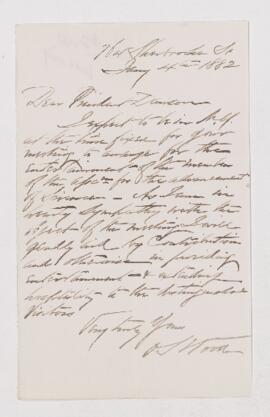 Sherbrooke St
4th 1882
Dear Principal Dawson
I expect to be in
at the time fixed for your
meeting to arrange for the
Entertainment of the members
of the Assn for the advancement
of Science - As I am in
hearty sympathy with the
object of the meeting I will
gladly aid by Contribution
and otherwise in providing
Entertainment & extending
hospitality to the distinguished
Visitors
Very truly Yours